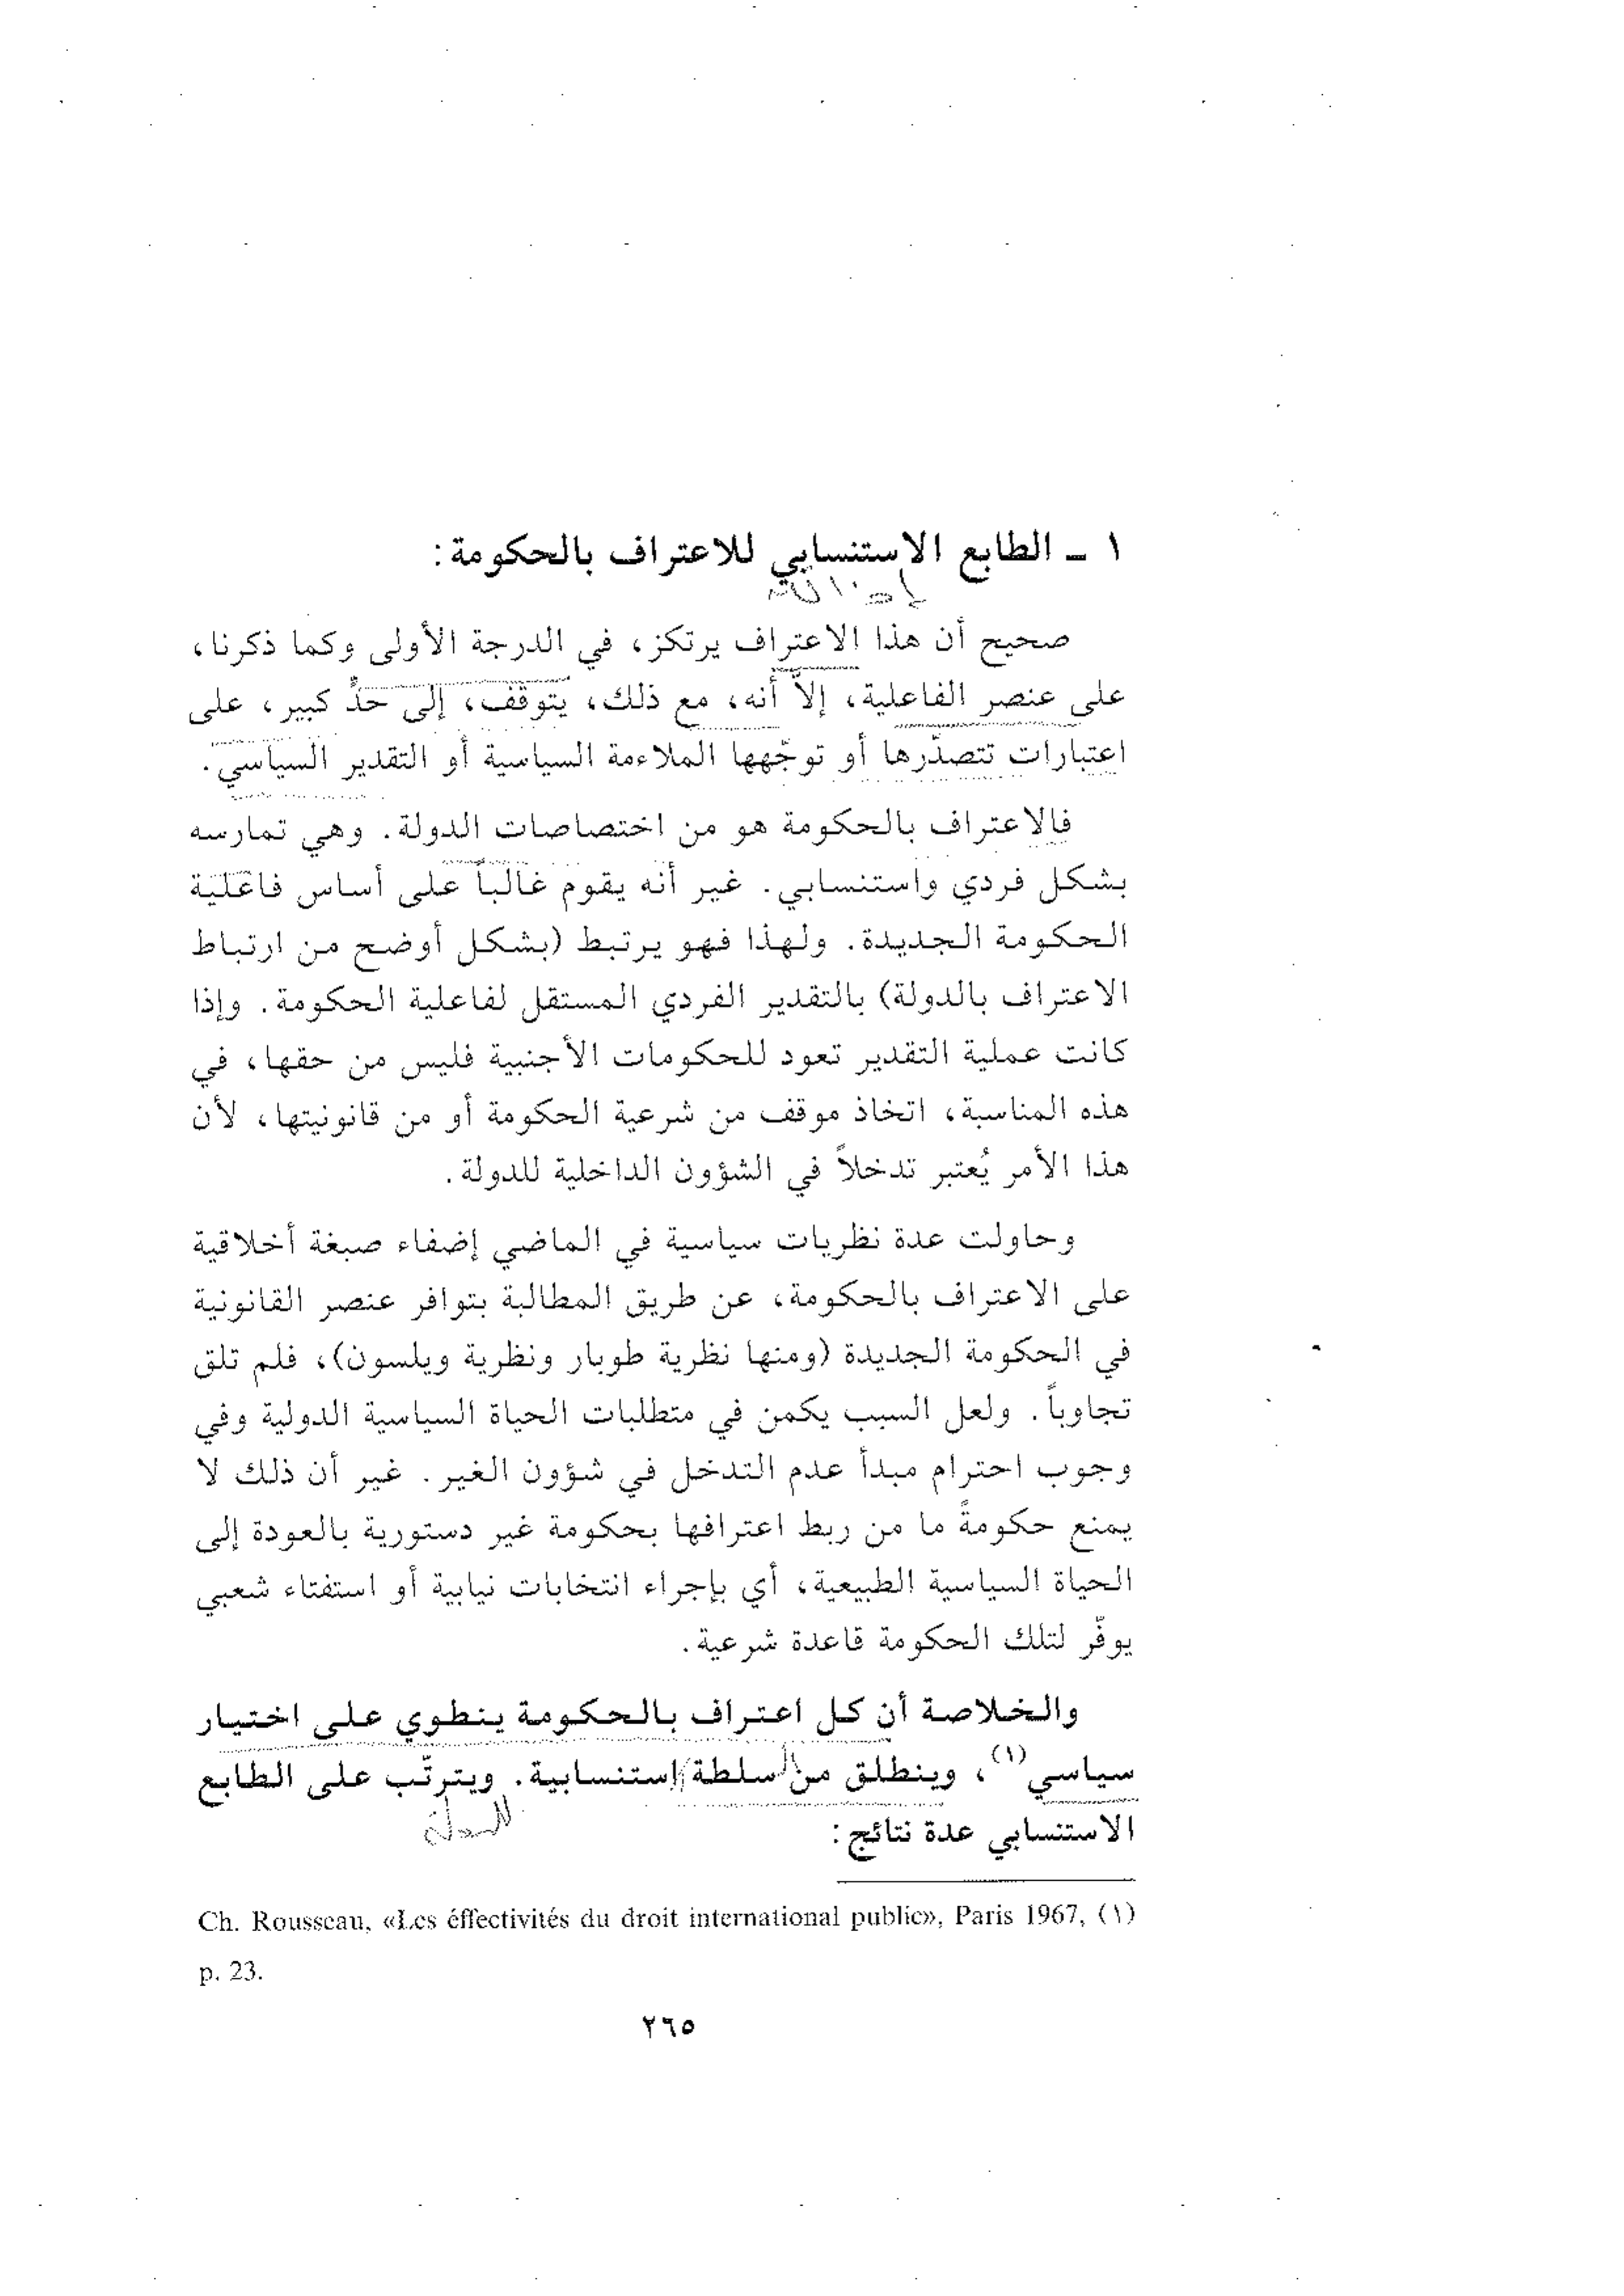 ١ - الطابع الاستنسابي للاعتراف بالحكومة:
صحيح أن هذا الاعتراف يرتكز، في الدرجة الأولى وكما ذكرنا،
على عنصر الفاعلية، إلاّ أنه، مع ذلك، يتوقف، إلى حدٍّ كبير، على
اعتبارات تتصدّرها أو توجّهها الملاءمة السياسية أو التقدير السياسي.
فالاعتراف بالحكومة هو من اختصاصات الدولة. وهي تمارسه
بشكل فردي واستنسابي. غير أنه يقوم غالباً على أساس فاعلية
الحكومة الجديدة. ولهذا فهو يرتبط (بشكل أوضح من ارتباط
الاعتراف بالدولة) بالتقدير الفردي المستقل لفاعلية الحكومة. وإذا
كانت عملية التقدير تعود للحكومات الأجنبية فليس من حقها، في
هذه المناسبة، اتخاذ موقف من شرعية الحكومة أو من قانونيتها، لأن
هذا الأمر يُعتبر تدخلاً في الشؤون الداخلية للدولة.
وحاولت عدة نظريات سياسية في الماضي إضفاء صبغة أخلاقية
على الاعتراف بالحكومة، عن طريق المطالبة بتوافر عنصر القانونية
في الحكومة الجديدة (ومنها نظرية طوبار ونظرية ويلسون)، فلم تلق
تجاوباً. ولعل السبب يكمن في متطلبات الحياة السياسية الدولية وفي
وجوب احترام مبدأ عدم التدخل في شؤون الغير. غير أن ذلك لا
يمنع حكومةً ما من ربط اعترافها بحكومة غير دستورية بالعودة إلى
الحياة السياسية الطبيعية، أي بإجراء انتخابات نيابية أو استفتاء شعبي
يوفّر لتلك الحكومة قاعدة شرعية.
والخلاصة أن كل اعتراف بالحكومة ينطوي على اختيار
سياسي(١)، وينطلق من سلطة استنسابية. ويترتّب على الطابع
الاستنسابي عدة نتائج:
Ch. Rousseau, «Les éffectivités du droit international public», Paris 1967, (١)
p. 23.
٢٦٥